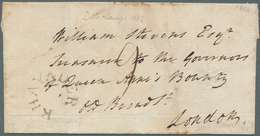 William Stevens Esqr.
Treasurer to the Governors
of Queen Ann's Bounty
Old Broad St.
London.